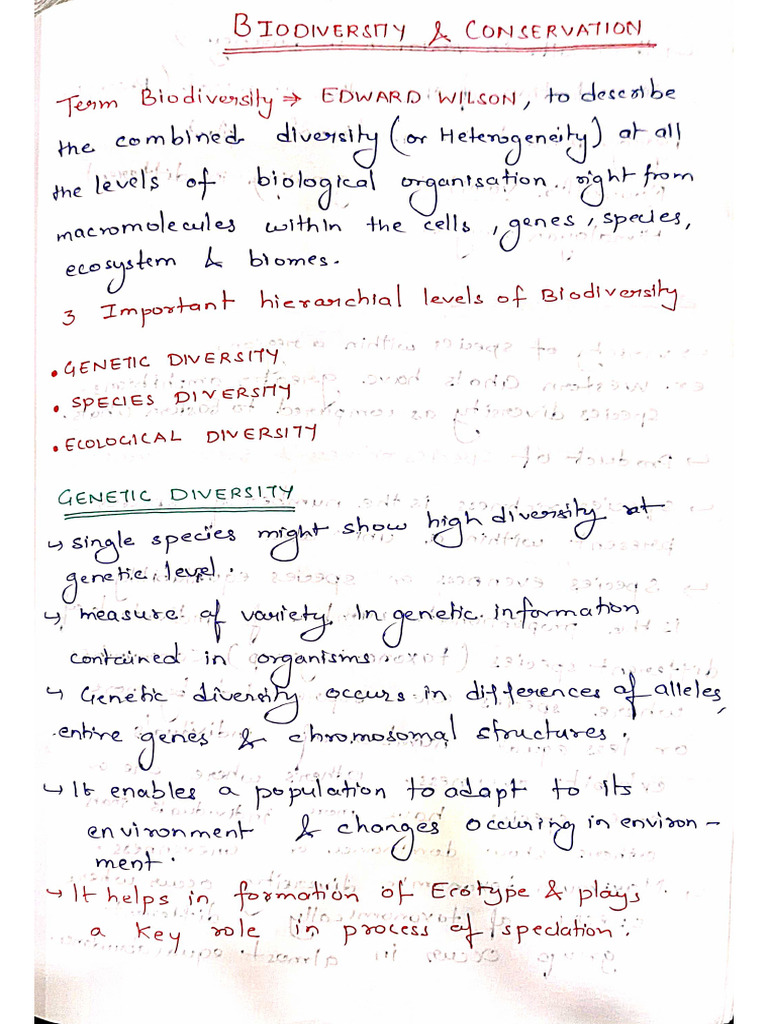 BIODIVERSITY & CONSERVATION
Term Biodiversity → EDWARD WILSON, to describe
the combined diversity (or Heterogeneity) at all
the levels of biological organisation right from
macromolecules within the cells, genes, species,
ecosystem & biomes.
3 Important hierarchial levels of Biodiversity
• GENETIC DIVERSITY
• SPECIES DIVERSITY
• ECOLOGICAL DIVERSITY
GENETIC DIVERSITY
↳ single species might show high diversity at
genetic level.
↳ measure of variety in genetic information
contained in organisms
↳ Genetic diversity occurs in differences of alleles,
entire genes & chromosomal structures.
↳ It enables a population to adapt to its
environment & changes occuring in environ-
ment.
↳ It helps in formation of Ecotype & plays
a key role in process of speciation.